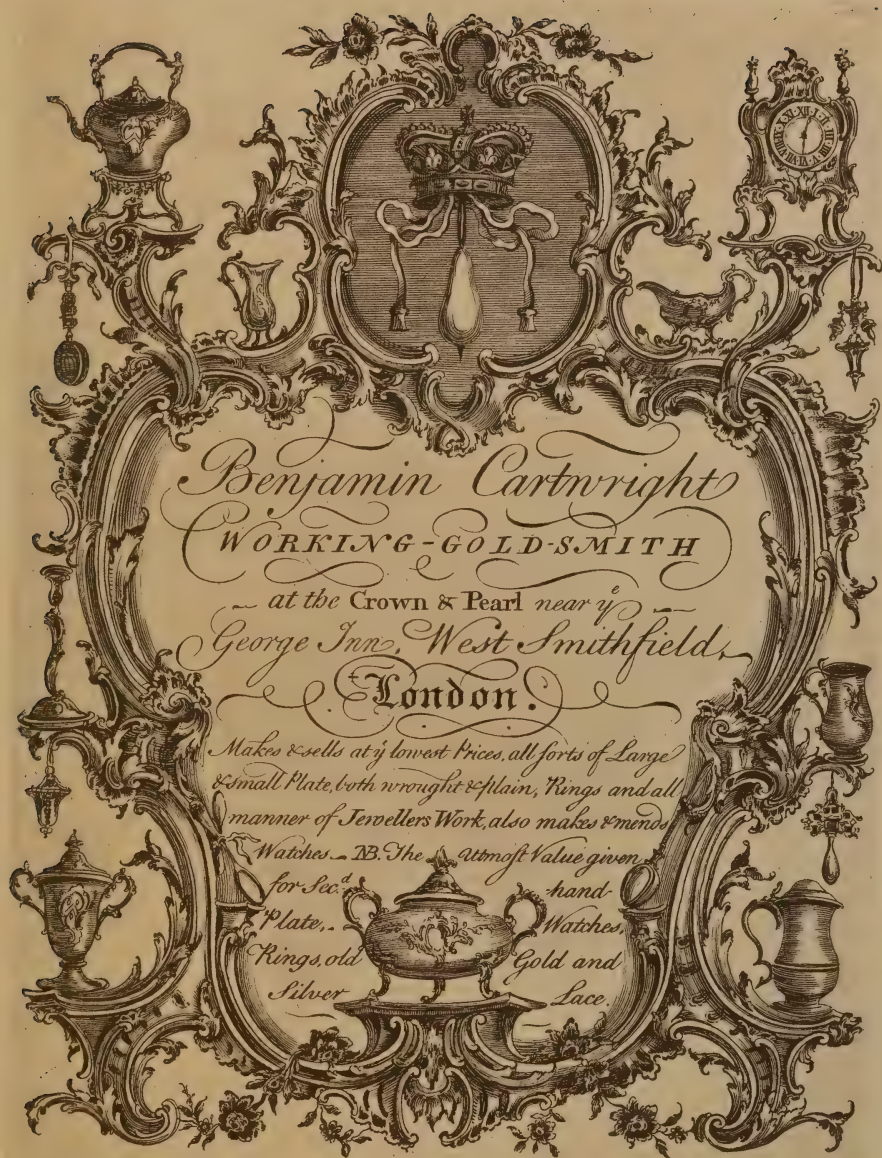 XII I II III IIII V VI VII VIII IX X XI
Benjamin Cartwright
WORKING-GOLD-SMITH
at the Crown & Pearl near yᵉ
George Inn, West Smithfield,
London.
Makes & sells at ẏ lowest Prices, all ſorts of Large
& small Plate, both wrought & plain, Rings and all
manner of Jewellers Work, also makes & mends
Watches. NB. The Utmoſt Value given
for Sec.ᵈ hand
Plate, Watches,
Rings, old Gold and
Silver Lace.